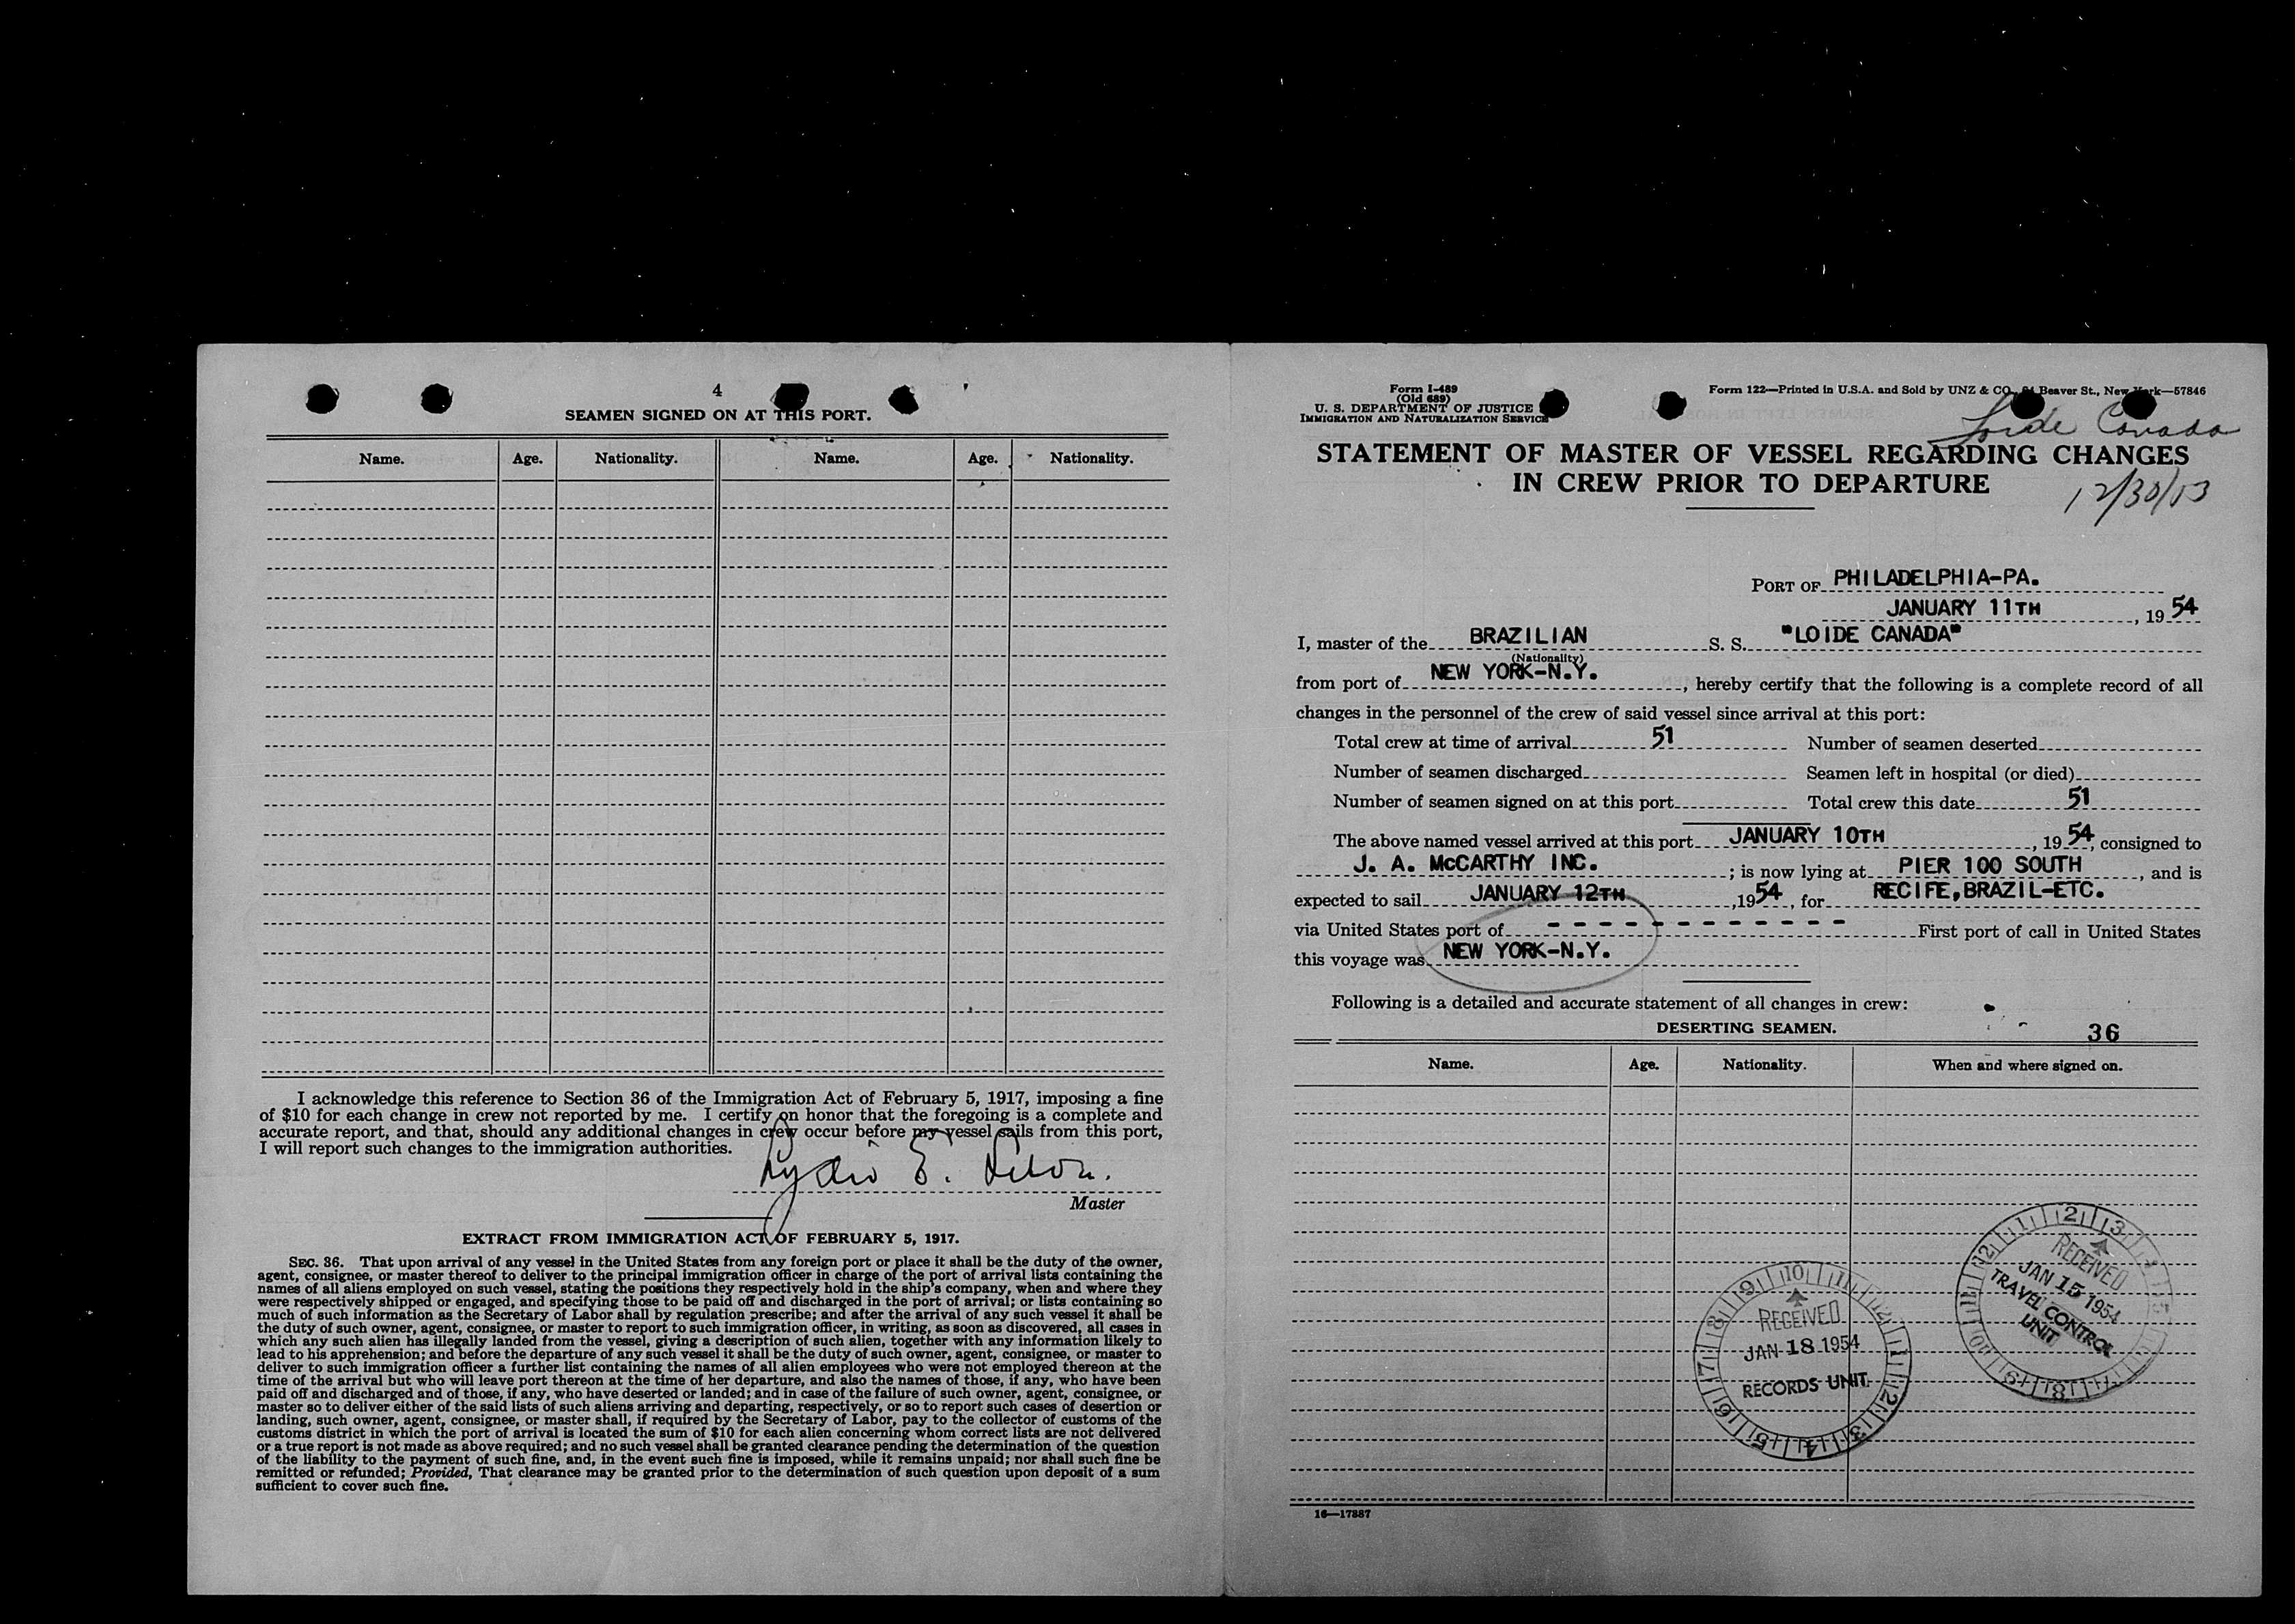 4
SEAMEN SIGNED ON AT THIS PORT.
Name. Age. Nationality. Name. Age. Nationality.
I acknowledge this reference to Section 36 of the Immigration Act of February 5, 1917, imposing a fine
of $10 for each change in crew not reported by me. I certify on honor that the foregoing is a complete and
accurate report, and that, should any additional changes in crew occur before my vessel sails from this port,
I will report such changes to the immigration authorities.
Lydio E.
Master
EXTRACT FROM IMMIGRATION ACT OF FEBRUARY 5, 1917.
SEC. 36. That upon arrival of any vessel in the United States from any foreign port or place it shall be the duty of the owner,
agent, consignee, or master thereof to deliver to the principal immigration officer in charge of the port of arrival lists containing the
names of all aliens employed on such vessel, stating the positions they respectively hold in the ship's company, when and where they
were respectively shipped or engaged, and specifying those to be paid off and discharged in the port of arrival; or lists containing so
much of such information as the Secretary of Labor shall by regulation prescribe; and after the arrival of any such vessel it shall be
the duty of such owner, agent, consignee, or master to report to such immigration officer, in writing, as soon as discovered, all cases in
which any such alien has illegally landed from the vessel, giving a description of such alien, together with any information likely to
lead to his apprehension; and before the departure of any such vessel it shall be the duty of such owner, agent, consignee, or master to
deliver to such immigration officer a further list containing the names of all alien employees who were not employed thereon at the
time of the arrival but who will leave port thereon at the time of her departure, and also the names of those, if any, who have been
paid off and discharged and of those, if any, who have deserted or landed; and in case of the failure of such owner, agent, consignee, or
master so to deliver either of the said lists of such aliens arriving and departing, respectively, or so to report such cases of desertion or
landing, such owner, agent, consignee, or master shall, if required by the Secretary of Labor, pay to the collector of customs of the
customs district in which the port of arrival is located the sum of $10 for each alien concerning whom correct lists are not delivered
or a true report is not made as above required; and no such vessel shall be granted clearance pending the determination of the question
of the liability to the payment of such fine, and, in the event such fine is imposed, while it remains unpaid; nor shall such fine be
remitted or refunded; Provided, That clearance may be granted prior to the determination of such question upon deposit of a sum
sufficient to cover such fine.
Form I-489
(Old 689)
U. S. DEPARTMENT OF JUSTICE
IMMIGRATION AND NATURALIZATION SERVICE
Form 122—Printed in U.S.A. and Sold by UNZ & CO., Beaver St., New York—57846
Loide Canada
STATEMENT OF MASTER OF VESSEL REGARDING CHANGES
IN CREW PRIOR TO DEPARTURE
12/30/53
PORT OF PHILADELPHIA-PA.
JANUARY 11TH, 1954
I, master of the BRAZILIAN S. S. "LOIDE CANADA"
(Nationality)
from port of NEW YORK-N.Y., hereby certify that the following is a complete record of all
changes in the personnel of the crew of said vessel since arrival at this port:
Total crew at time of arrival 51 Number of seamen deserted
Number of seamen discharged Seamen left in hospital (or died)
Number of seamen signed on at this port Total crew this date 51
The above named vessel arrived at this port JANUARY 10TH, 1954, consigned to
J. A. McCARTHY INC. ; is now lying at PIER 100 SOUTH, and is
expected to sail JANUARY 12TH, 1954, for RECIFE,BRAZIL-ETC.
via United States port of - - - - - - - - - - - - First port of call in United States
this voyage was NEW YORK-N.Y.
Following is a detailed and accurate statement of all changes in crew:
DESERTING SEAMEN.
36
Name. Age. Nationality. When and where signed on.
RECEIVED
JAN 15 1954
TRAVEL CONTROL
UNIT
RECEIVED
JAN 18 1954
RECORDS UNIT
16—17887